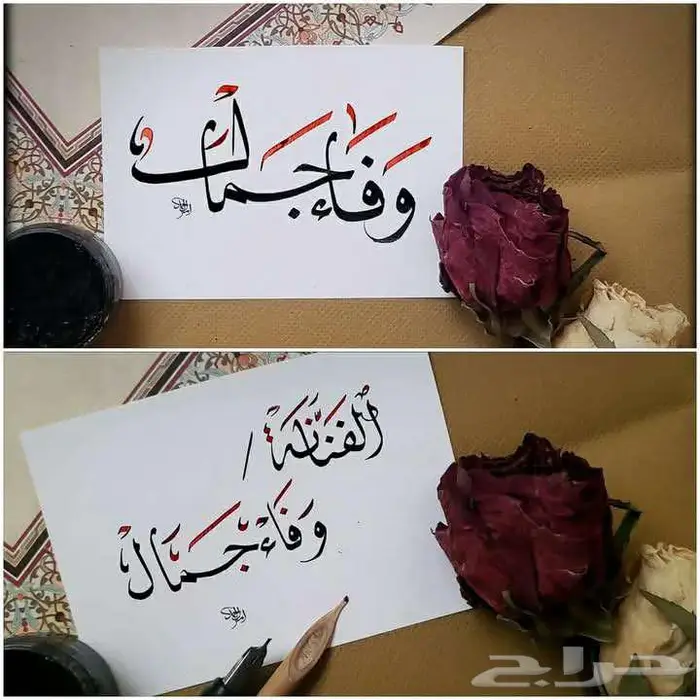 وَفَاء جَمال
الفَنَّانَة /
وَفَاءْ جَمَال
حراج